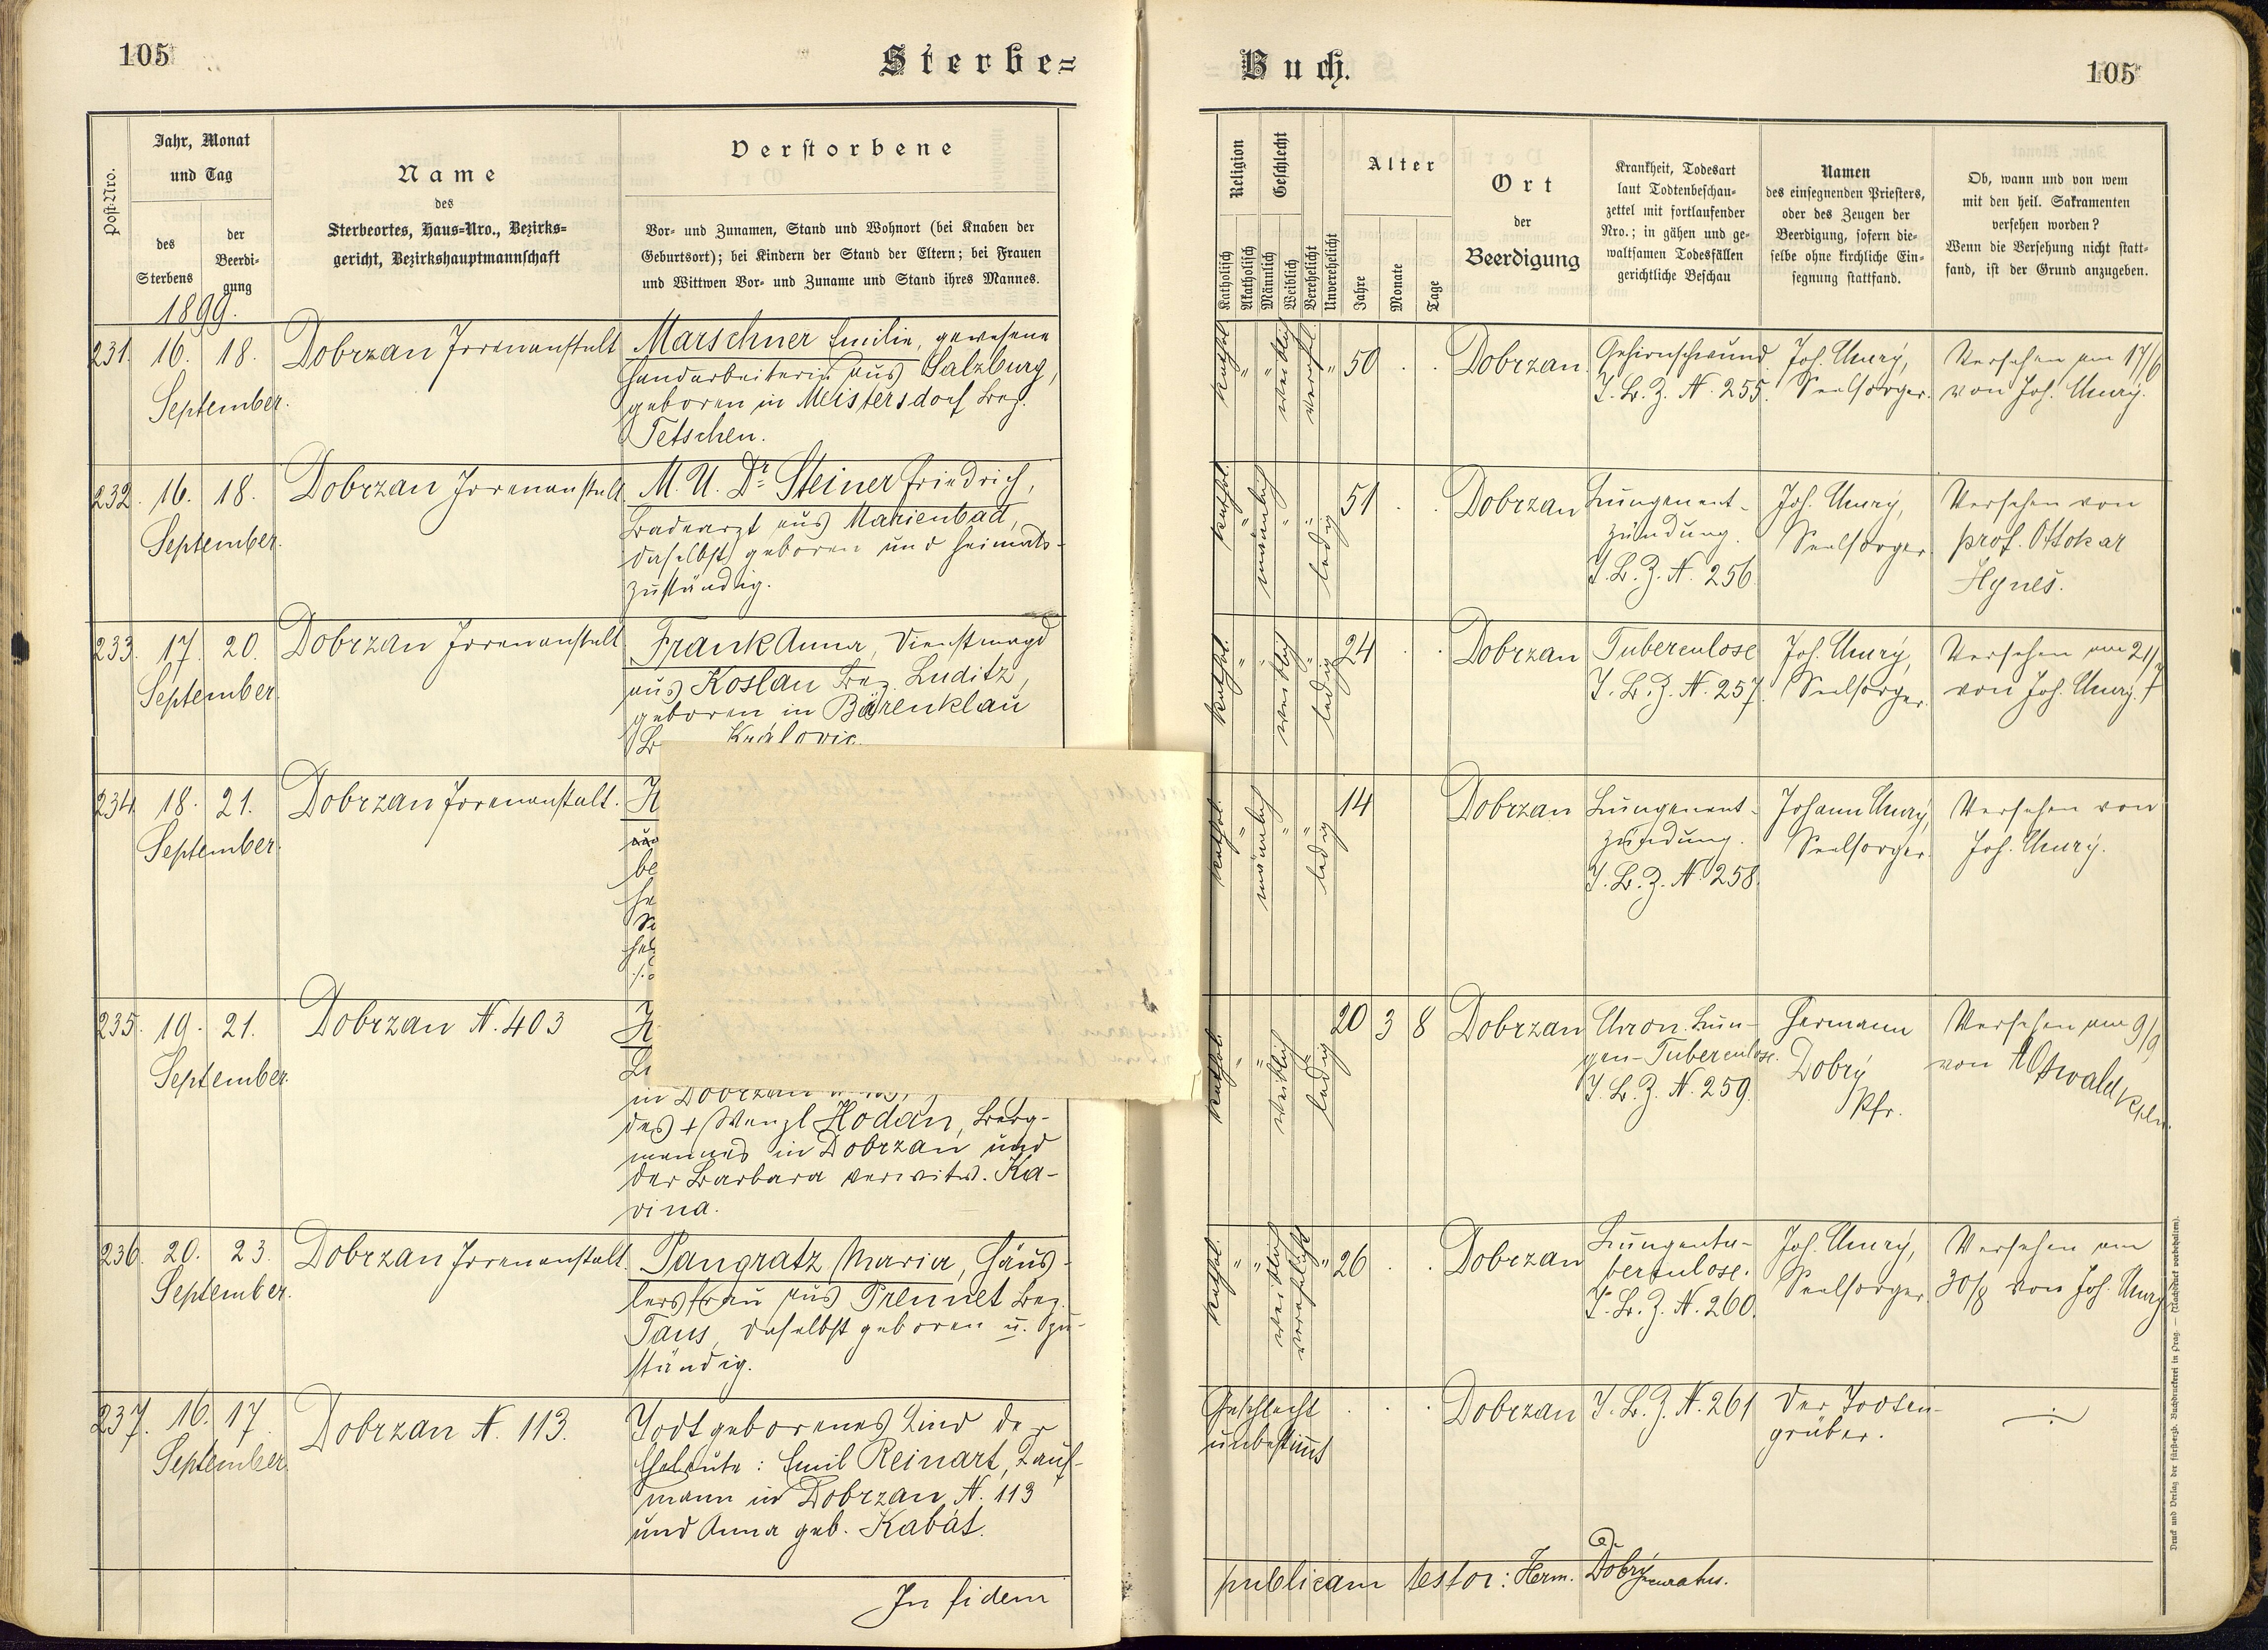 105
Sterbe=
Jahr, Monat
und Tag
Post-Nro.
des
Sterbens
der
Beerdi-
gung
Name
des
Sterbeortes, Haus=Nro., Bezirks=
gericht, Bezirkshauptmannschaft
Verstorbene
Vor- und Zunamen, Stand und Wohnort (bei Knaben der
Geburtsort); bei Kindern der Stand der Eltern; bei Frauen
und Wittwen Vor- und Zuname und Stand ihres Mannes.
1899.
231. 16. 18.
September.
Dobrzan Irrenanstalt
Marschner Emilie, gewesene
Handarbeiterin aus Salzburg,
geboren in Meistersdorf Bez.
Tetschen.
232. 16. 18.
September.
Dobrzan Irrenanstalt
M. U. Dr. Steiner Friedrich,
Badearzt aus Marienbad,
daselbst geboren und heimats-
zuständig.
233. 17. 20.
September.
Dobrzan Irrenanstalt
Frank Anna, Dienstmagd
aus Koslau Bez. Luditz,
geboren in Bärenklau
Kralovic.
234. 18. 21.
September.
Dobrzan Irrenanstalt.
235. 19. 21.
September.
Dobrzan N. 403
in Dobrzan
des + Wenzl Hodan, Berg-
mannes in Dobrzan und
der Barbara verwitw. Ka-
vina.
236. 20. 23.
September.
Dobrzan Irrenanstalt
Pangratz Maria, Häus-
lersfrau aus Prennet Bez.
Taus, daselbst geboren u. zu-
ständig.
237. 16. 17.
September
Dobrzan N. 113.
Todtgeborenes Kind der
Eheleute: Emil Reinart, Kauf-
mann in Dobrzan N. 113
und Anna geb. Kabát.
In fidem
Buch.
105
Religion
Geschlecht
Katholisch
Akatholisch
Männlich
Weiblich
Verehelicht
Unverehelicht
Alter
Jahre
Monate
Tage
Ort
der
Beerdigung
Krankheit, Todesart
laut Todtenbeschau-
zettel mit fortlaufender
Nro.; in gähen und ge-
waltsamen Todesfällen
gerichtliche Beschau
Namen
des einsegnenden Priesters,
oder des Zeugen der
Beerdigung, sofern die-
selbe ohne kirchliche Ein-
segnung stattfand.
Ob, wann und von wem
mit den heil. Sakramenten
versehen worden?
Wenn die Versehung nicht statt-
fand, ist der Grund anzugeben.
kathol. " " weiblich verehel. " 50 . .
Dobrzan.
Gehirnschwund
T. B. Z. N. 255.
Seelsorger.
Versehen am 17/6
von Joh.
kathol. " männlich " " ledig 51 . .
Dobrzan
Lungenent-
zündung.
T. B. Z. N. 256.
Seelsorger.
Versehen von
prof. Ottokar
Hynes.
kathol. " " weiblich " ledig 24 . .
Dobrzan
Tuberculose
T. B. Z. N. 257.
Seelsorger.
Versehen am 21/7
von Joh.
kathol. " männlich " " ledig 14
Dobrzan
Lungenent-
zündung.
T. B. Z. N. 258.
Johann
Seelsorger.
Versehen von
Joh.
kathol. " " weiblich " ledig 20 3 8
Dobrzan
Chron. Lun-
gen-Tuberculose.
T. B. Z. N. 259.
Hermann
Dobrý
Pfr.
Versehen am 9/9
von
kathol. " " weiblich verehelicht " 26 . .
Dobrzan
Lungentu-
berculose.
T. B. Z. N. 260.
Seelsorger.
Versehen am
30/8 von Joh.
Geschlecht
unbestimmt
. . .
Dobrzan
T. B. Z. N. 261
Der Todten-
gräber.
publicam testor: Herm. Dobrý
Druck und Verlag der fürsterzb. Buchdruckerei in Prag. — (Nachdruck vorbehalten).